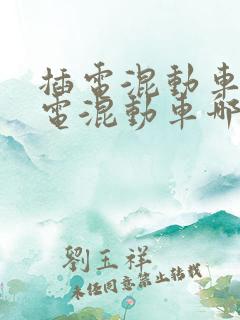 插電混動車
電混動車哪
劉玉祥
未經同意禁止轉載